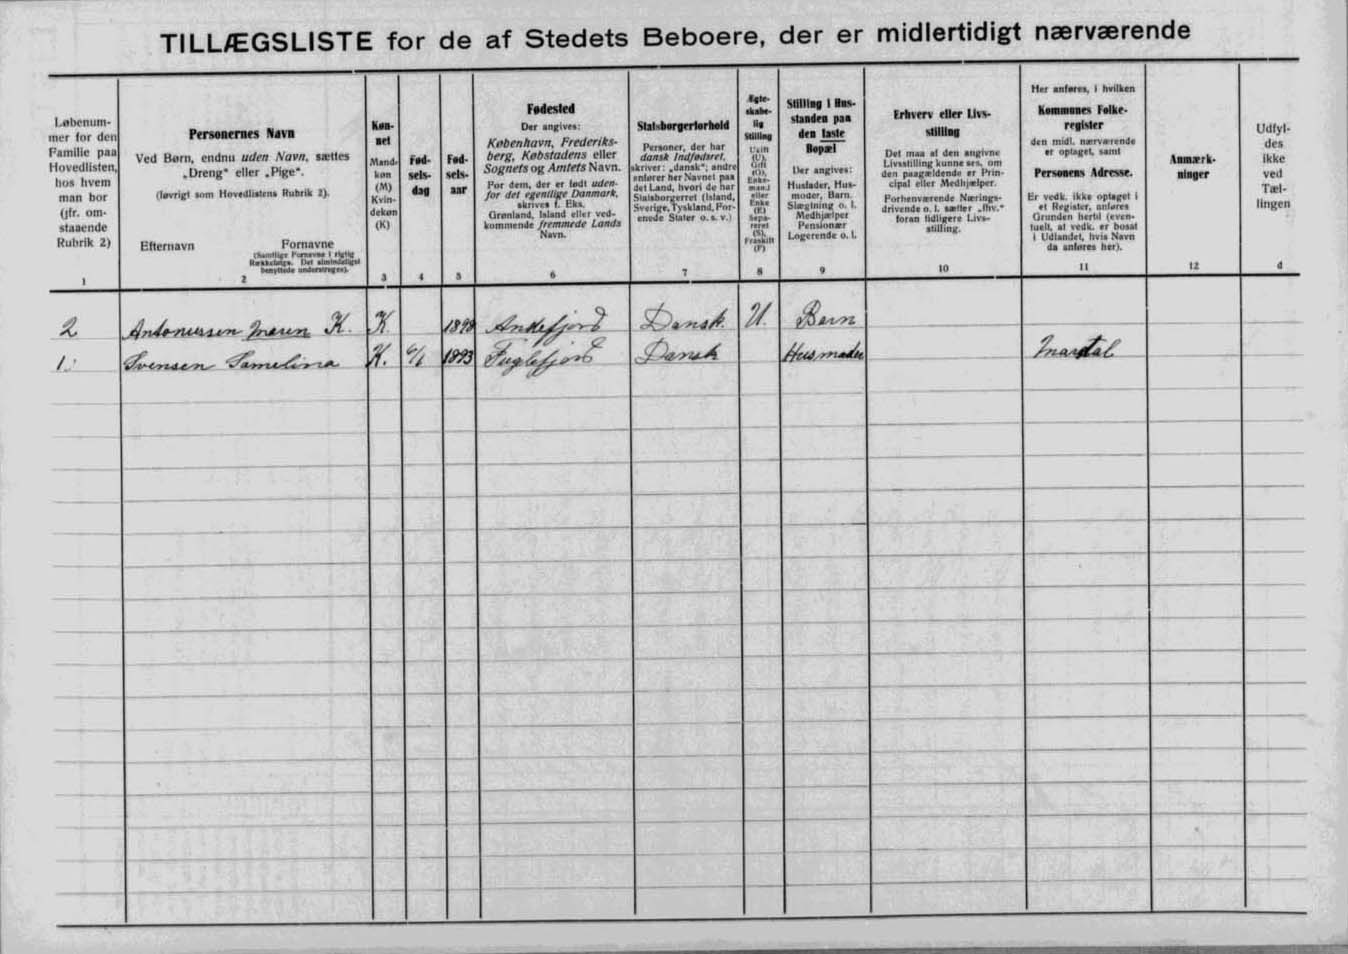 TILLÆGSLISTE for de af Stedets Beboere, der er midlertidigt nærværende
Løbenum-
mer for den
Familie paa
Hovedlisten,
hos hvem
man bor
(jfr. om-
staaende
Rubrik 2)
1
Personernes Navn
Ved Børn, endnu uden Navn, sættes
„Dreng“ eller „Pige“.
(Iøvrigt som Hovedlistens Rubrik 2).
Efternavn
Fornavne
(Samtlige Fornavne i rigtig
Rækkefølge. Det almindeligst
benyttede understreges).
2
Køn-
net
Mand-
køn
(M)
Kvin-
dekøn
(K)
3
Fød-
sels-
dag
4
Fød-
sels-
aar
5
Fødested
Der angives:
København, Frederiks-
berg, Købstadens eller
Sognets og Amtets Navn.
For dem, der er født uden-
for det egentlige Danmark,
skrives f. Eks.
Grønland, Island eller ved-
kommende fremmede Lands
Navn.
6
Statsborgerforhold
Personer, der har
dansk Indfødsret,
skriver: „dansk“; andre
anfører her Navnet paa
det Land, hvori de har
Statsborgerret (Island,
Sverige, Tyskland, For-
enede Stater o. s. v.)
7
Ægte-
skabe-
lig
Stilling
Ugift
(U),
Gift
(G),
Enke-
mand
eller
Enke
(E)
Sepa-
reret
(S),
Fraskilt
(F)
8
Stilling i Hus-
standen paa
den faste
Bopæl
Der angives:
Husfader, Hus-
moder, Barn.
Slægtning o. l.
Medhjælper
Pensionær
Logerende o. l.
9
Erhverv eller Livs-
stilling
Det maa af den angivne
Livsstilling kunne ses, om
den paagældende er Prin-
cipal eller Medhjælper.
Forhenværende Nærings-
drivende o. l. sætter „fhv.“
foran tidligere Livs-
stilling.
10
Her anføres, i hvilken
Kommunes Folke-
register
den midl. nærværende
er optaget, samt
Personens Adresse.
Er vedk. ikke optaget i
et Register, anføres
Grunden hertil (even-
tuelt, at vedk. er bosat
i Udlandet, hvis Navn
da anføres her).
11
Anmærk-
ninger
12
Udfyl-
des
ikke
ved
Tæl-
lingen
d
2 Antoniussen Maren K. K. 1898 Andefjord Dansk. U. Barn
1 Svensen Samelina K. 6/1 1893 Fuglefjord Dansk Husmoder